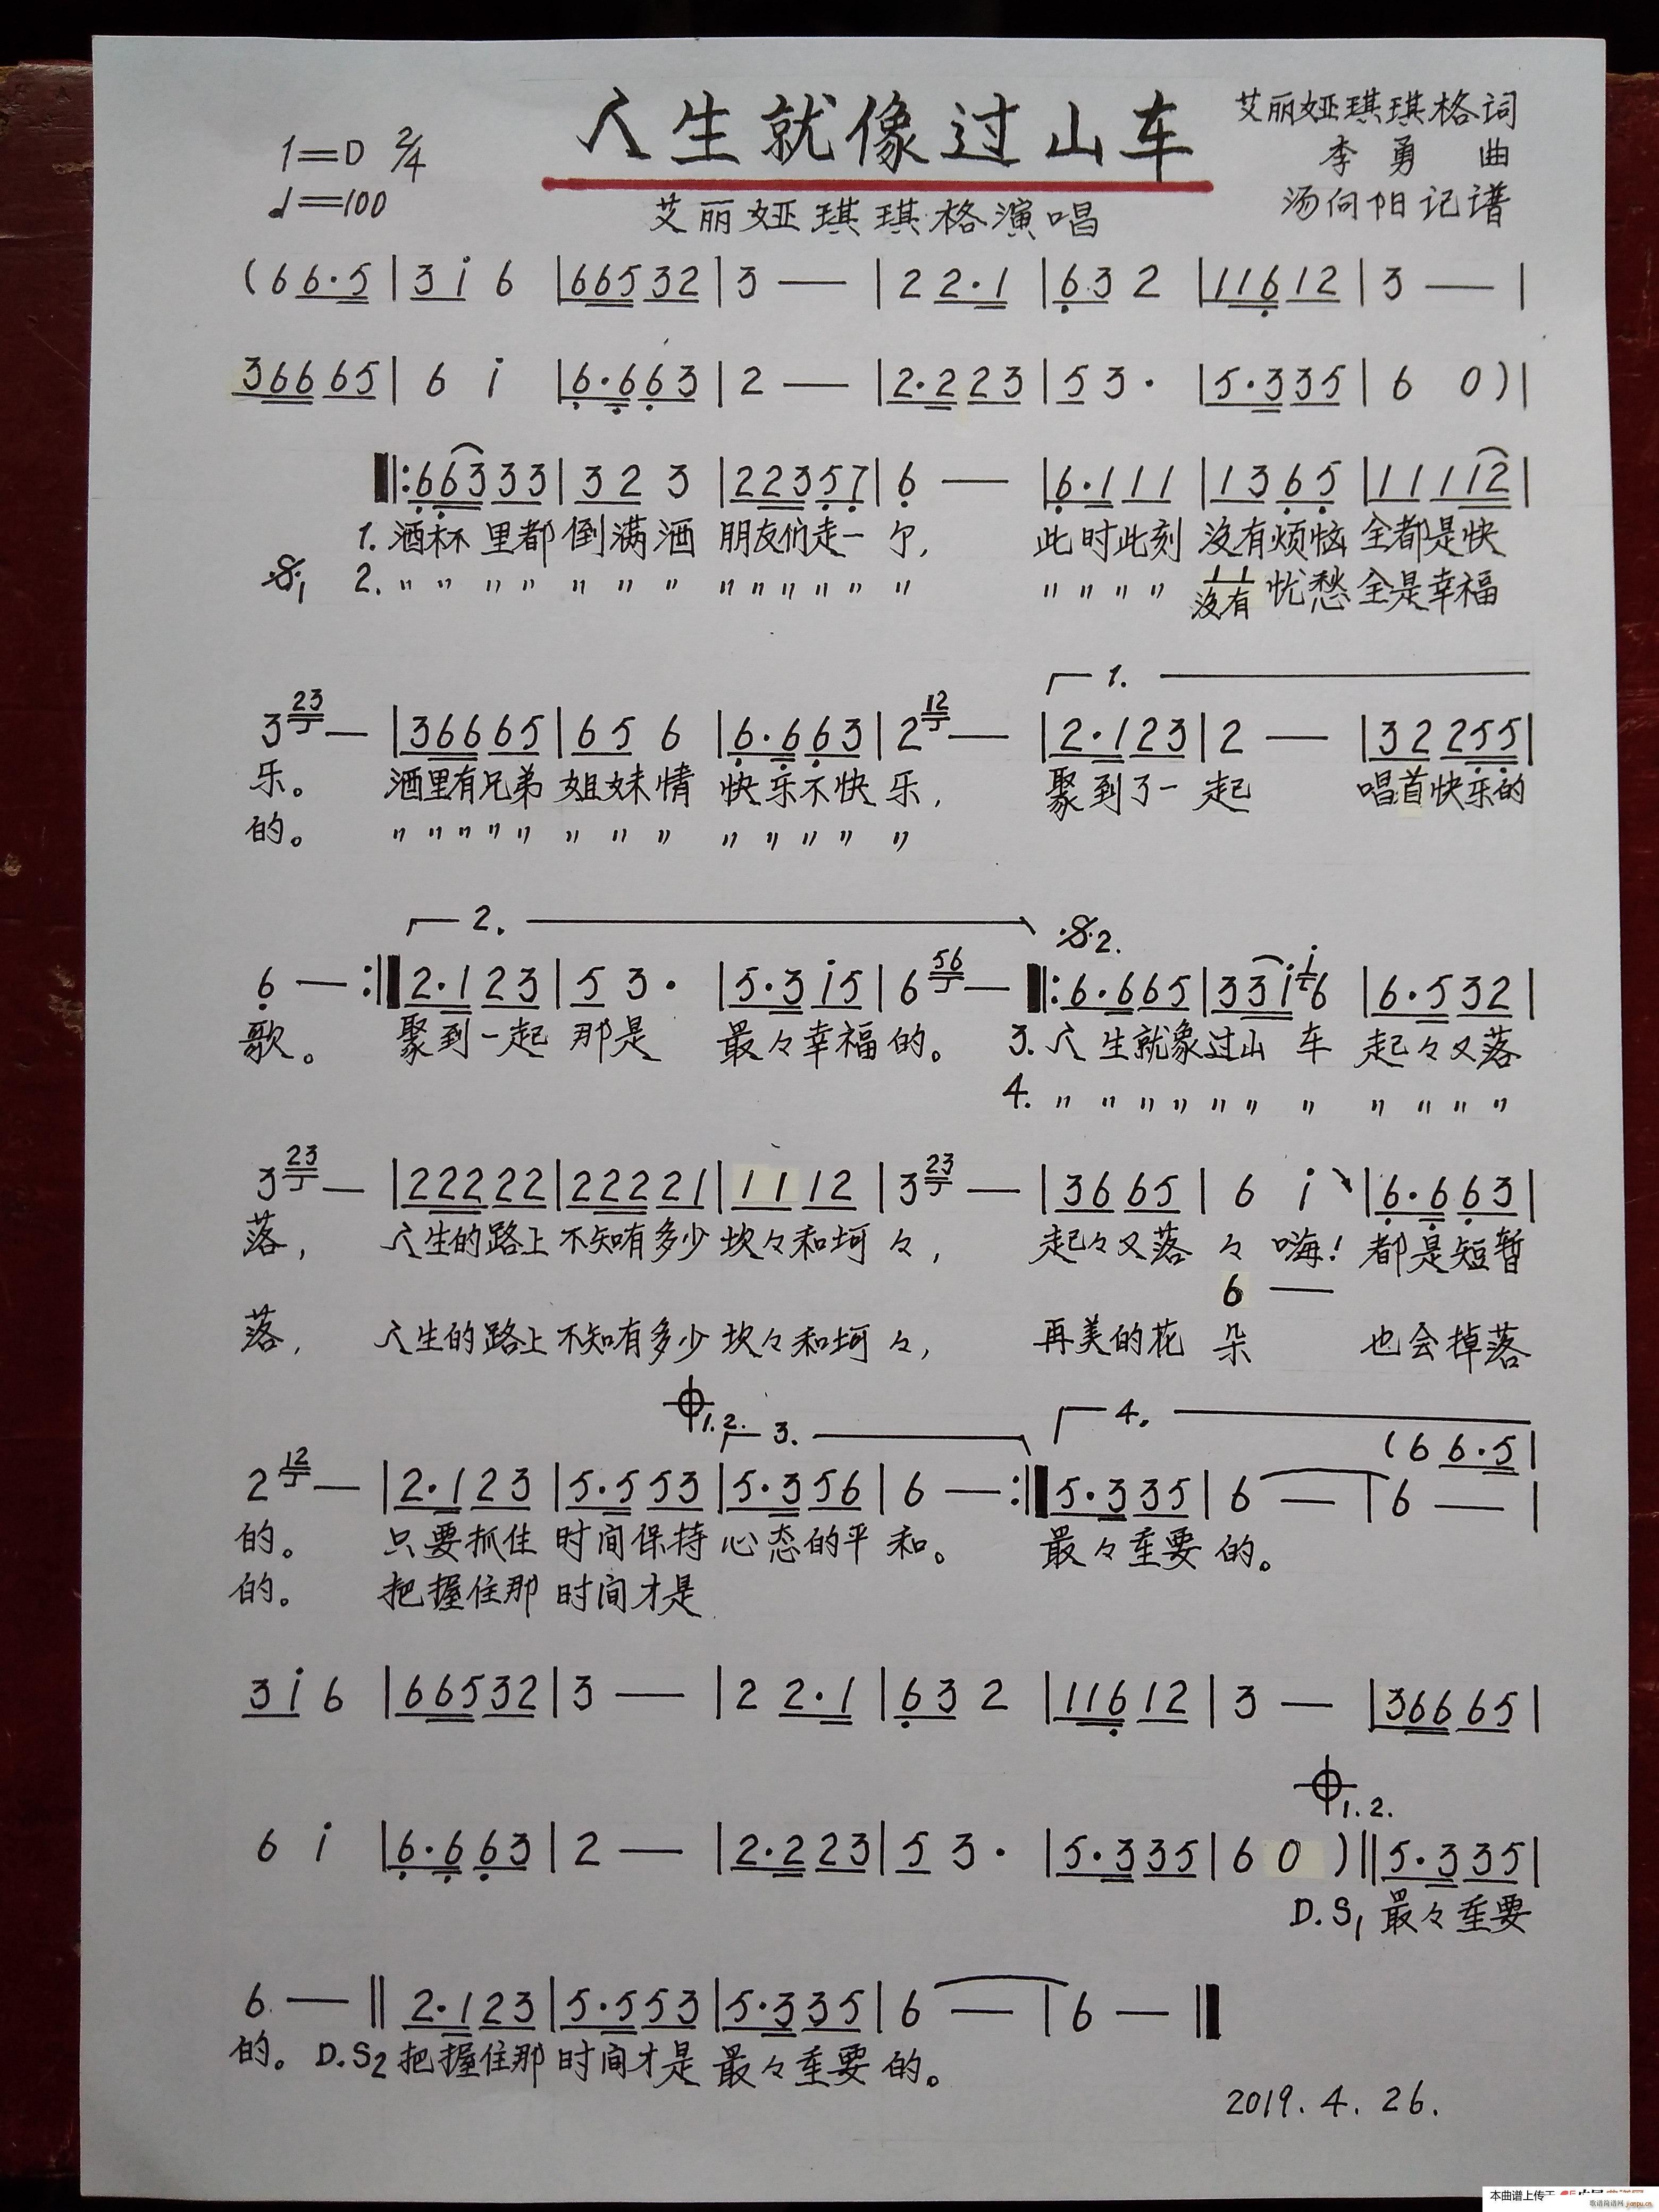 人生就像过山车
艾丽娅琪琪格词
1=D 2/4
李勇 曲
♩=100
汤向阳记谱
艾丽娅琪琪格演唱
(6 6·5|3 i 6|66532|3 —|2 2·1|63 2|11612|3 —|
36665|6 i|6·663|2 —|2·223|5 3·|5·335|6 0)|
‖:66333|32 3|22357|6 —|6·111|1365|11112|
1. 酒杯里都倒满酒 朋友们走一个, 此时此刻 没有烦恼 全都是快
𝄋1 2. 〃〃〃〃〃〃〃〃〃〃〃〃〃 〃〃〃〃 11 没有 忧愁 全是幸福
1.
3 23 —|36665|65 6|6·663|2 12 —|2·123|2 —|32 255|
乐。 酒里有兄弟 姐妹情 快乐不快乐, 聚到了一起 唱首快乐的
的。 〃〃〃〃〃〃〃〃〃〃〃〃〃
2. 𝄋2.
6 — :‖2·123|5 3·|5·3i5|6 56 —‖:6·665|33i i6|6·532|
歌。 聚到一起 那是 最々幸福的。 3. 人生就象过山车 起々又落
4. 〃〃〃〃〃〃〃〃〃〃〃
3 23 —|22222|22221|1112|3 23 —|3665|6 i|6·663|
落, 人生的路上 不知有多少 坎々和坷々, 起々又落々 嗨! 都是短暂
6 —
落, 人生的路上 不知有多少 坎々和坷々, 再美的花朵 也会掉落
𝄌1.2. 3. 4.
(6 6·5|
2 12 —|2·123|5·553|5·356|6 — :‖5·335|6 —|6 —|
的。 只要抓住 时间保持 心态的平和。 最々重要的。
的。 把握住那 时间才是
3 i 6|66532|3 —|2 2·1|63 2|11612|3 —|36665|
𝄌1.2.
6 i|6·663|2 —|2·223|5 3·|5·335|6 0 )‖5·335|
D.S1 最々重要
6 —‖2·123|5·553|5·335|6 —|6 —‖
的。 D.S2 把握住那 时间才是 最々重要的。
2019.4.26.
本曲谱上传于
歌谱简谱网 jianpu.cn